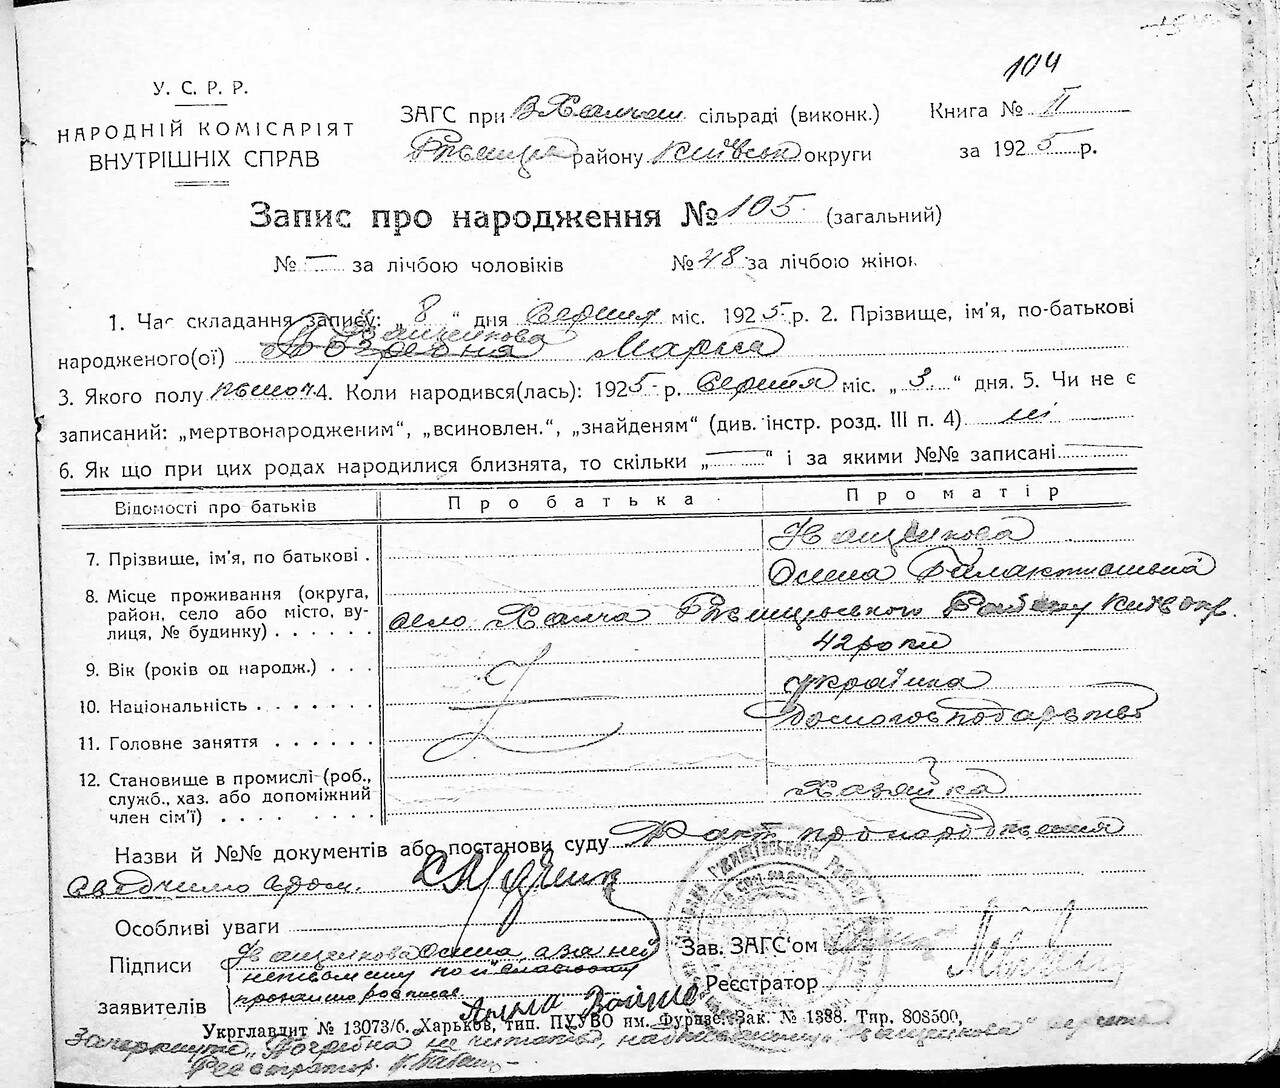 104
У. С. Р. Р.
НАРОДНІЙ КОМІСАРІЯТ
ВНУТРІШНІХ СПРАВ
ЗАГС при В Халчан сільраді (виконк.)
Книга № II
Ржищів району Київськ округи
за 1925 р.
Запис про народження № 105. (загальний)
№ — за лічбою чоловіків № 48 за лічбою жінок
1. Час складання запису: „8“ дня серпня міс. 1925 р. 2. Прізвище, ім'я, по-батькові
Іващенкова
народженого(ої) Погребна Марія
3. Якого полу жіноч 4. Коли народився(лась): 1925 р. серпня міс. „3“ дня. 5. Чи не є
записаний: „мертвонародженим“, „всиновлен.“, „знайденям“ (див. інстр. розд. III п. 4) ні
6. Як що при цих родах народилися близнята, то скільки „—“ і за якими №№ записані
Відомості про батьків Про батька Про матір
7. Прізвище, ім'я, по батькові . Іващенкова
Оксина Галактионівна
8. Місце проживання (округа, район, село або місто, вулиця, № будинку) . . . . . . село Халча Ржищівського Району Київ окр.
9. Вік (років од народж.) . . . 42 роки
10. Національність . . . . . . . українка
11. Головне заняття . . . . . . домогосподарство
12. Становище в промислі (роб., служб., хаз. або допоміжний член сім'ї) . . . . . . . . Хазяйка
Назви й №№ документів або постанови суду Факт про народження
свідчимо
Особливі уваги
Підписи Іващенкова Оксина, а за неї
неписьменну по її
заявителів розписався
Зав. ЗАГС'ом
Реєстратор
Укрглавліт № 13073/б. Харьков, тип. ПУУВО им. Фрунзе. Зак. № 1388. Тир. 808500,
Закреслене „Погребна“ не читати, надписаному „Іващенкова“ вірити.
Реєстратор